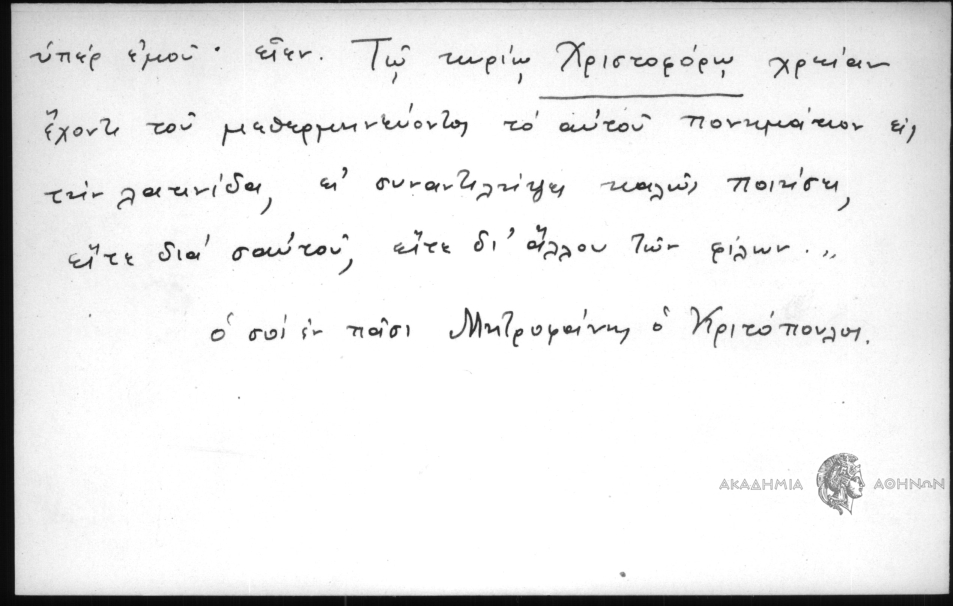 ὑπέρ ἐμοῦ· εἶεν. Τῷ κυρίῳ Χριστοφόρῳ χρείαν
ἔχοντι τοῦ μεθερμηνεύοντος τό αὐτοῦ πονημάτιον εἰς
τήν λατινίδα, εἰ συναντιλήψῃ καλῶς ποιήσεις,
εἴτε διά σαὐτοῦ, εἴτε δι' ἄλλου τῶν φίλων..,,
ὁ σοί ἐν πᾶσι Μητροφάνης ὁ Κριτόπουλος.
ΑΚΑΔΗΜΙΑ ΑΘΗΝΩΝ